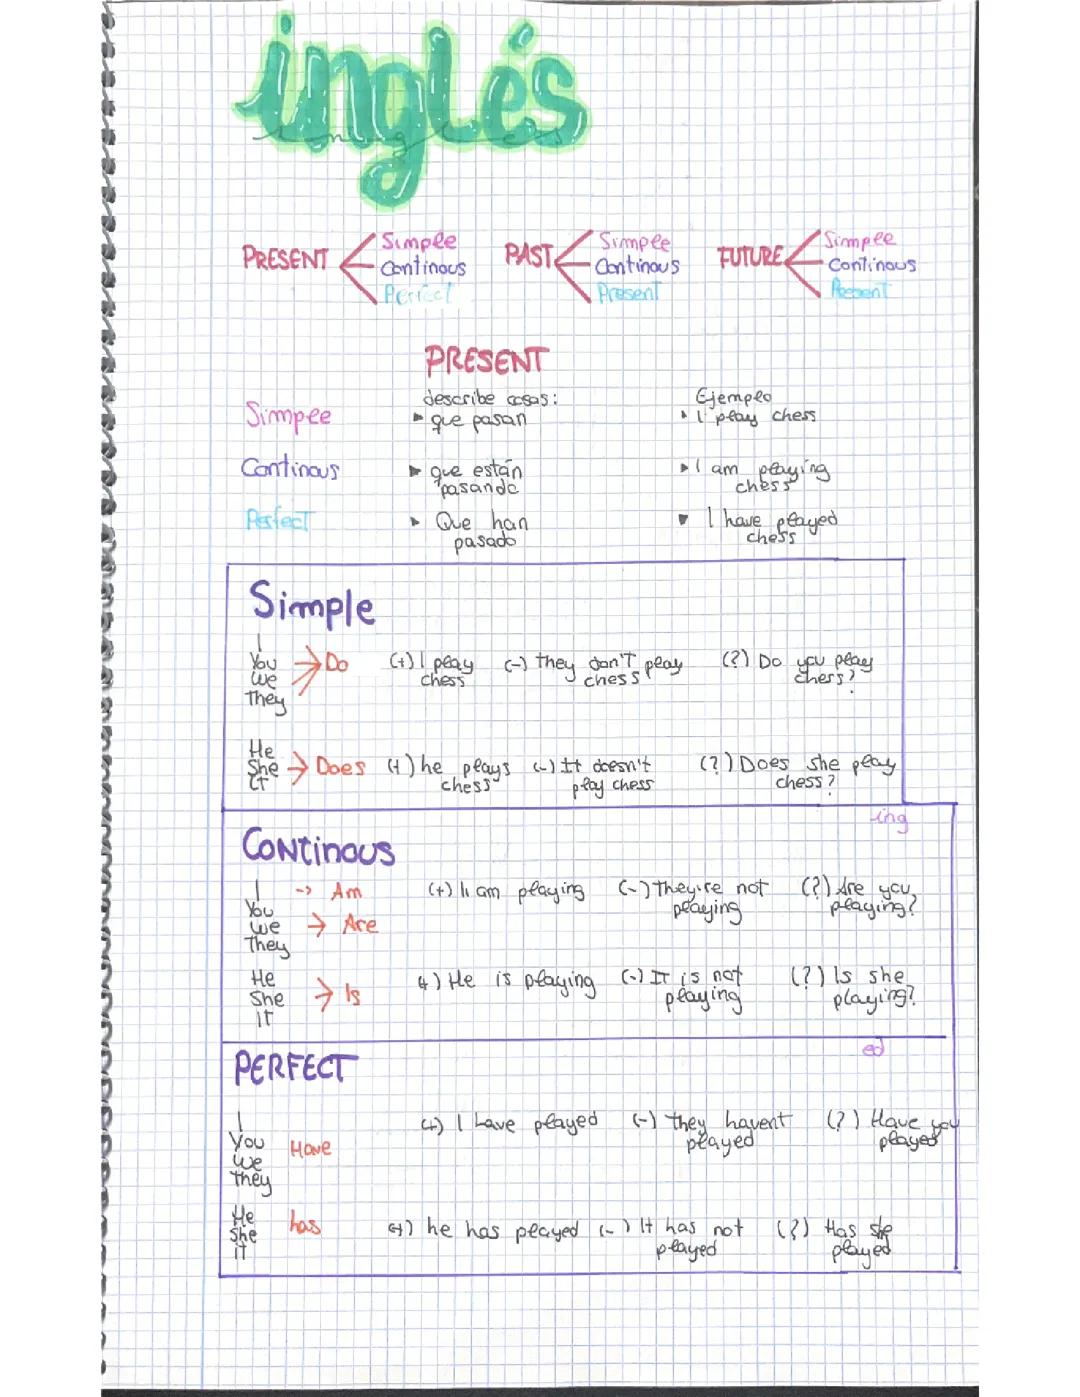 inglés
ingles
PRESENT Simple PAST Simple FUTURE Simple
Continous Continous Continous
Perfect Present Present
PRESENT
describe cosas: Ejemplo
Simple ▸ que pasan ▸ I play chess
Continous ▸ que están ▸ I am playing
pasando chess
Perfect ▸ Que han ▸ I have played
pasado chess
Simple
I
You → Do (+) I play (-) they don't play (?) Do you play
we chess chess chess?
They
He
She → Does (+) he plays (-) It doesn't (?) Does she play
It chess play chess chess?
ing
Continous
I -> Am (+) I am playing (-) they're not (?) Are you
You playing playing?
we → Are
They
He (+) He is playing (-) It is not (?) Is she
She → Is playing playing?
IT
ed
PERFECT
I (+) I have played (-) they havent (?) Have you
You Have played played
we
they
He has (+) he has played (-) It has not (?) Has she
She played played
it